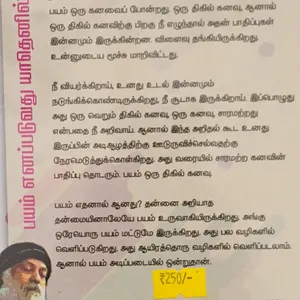 பயம் எனப்படுவது யாதெனில்
பயம் ஒரு கனவைப் போன்றது. ஒரு திகில் கனவு, ஆனால்
ஒரு திகில் கனவிற்கு பிறகு நீ எழுந்தால் அதன் பாதிப்புகள்
இன்னமும் இருக்கின்றன. விளைவு தங்கியிருக்கிறது.
உன்னுடைய மூச்சு மாறிவிட்டது.
நீ வியர்க்கிறாய், உனது உடல் இன்னமும்
நடுங்கிக்கொண்டிருக்கிறது. நீ சூடாக இருக்கிறாய். இப்பொழுது
அது ஒரு வெறும் திகில் கனவு, ஒரு கனவு, சாரமற்றது
என்பதை நீ அறிவாய். ஆனால் இந்த அறிதல் கூட உனது
இருப்பின் அடிஆழத்திற்கு ஊடுருவிச்செல்வதற்கு
நேரமெடுத்துக்கொள்கிறது. அது வரையில் சாரமற்ற கனவின்
பாதிப்பு தொடரும். பயம் ஒரு திகில் கனவு.
பயம் எதனால் ஆனது? தன்னை அறியாத
தன்மையினாலேயே பயம் உருவாகியிருக்கிறது. அங்கு
ஒரேயொரு பயம் மட்டுமே இருக்கிறது. அது பல வழிகளில்
வெளிப்படுகிறது. அது ஆயிரத்தொரு வழிகளில் வெளிப்படலாம்.
ஆனால் பயம் அடிப்படையில் ஒன்றுதான்.
₹250/-